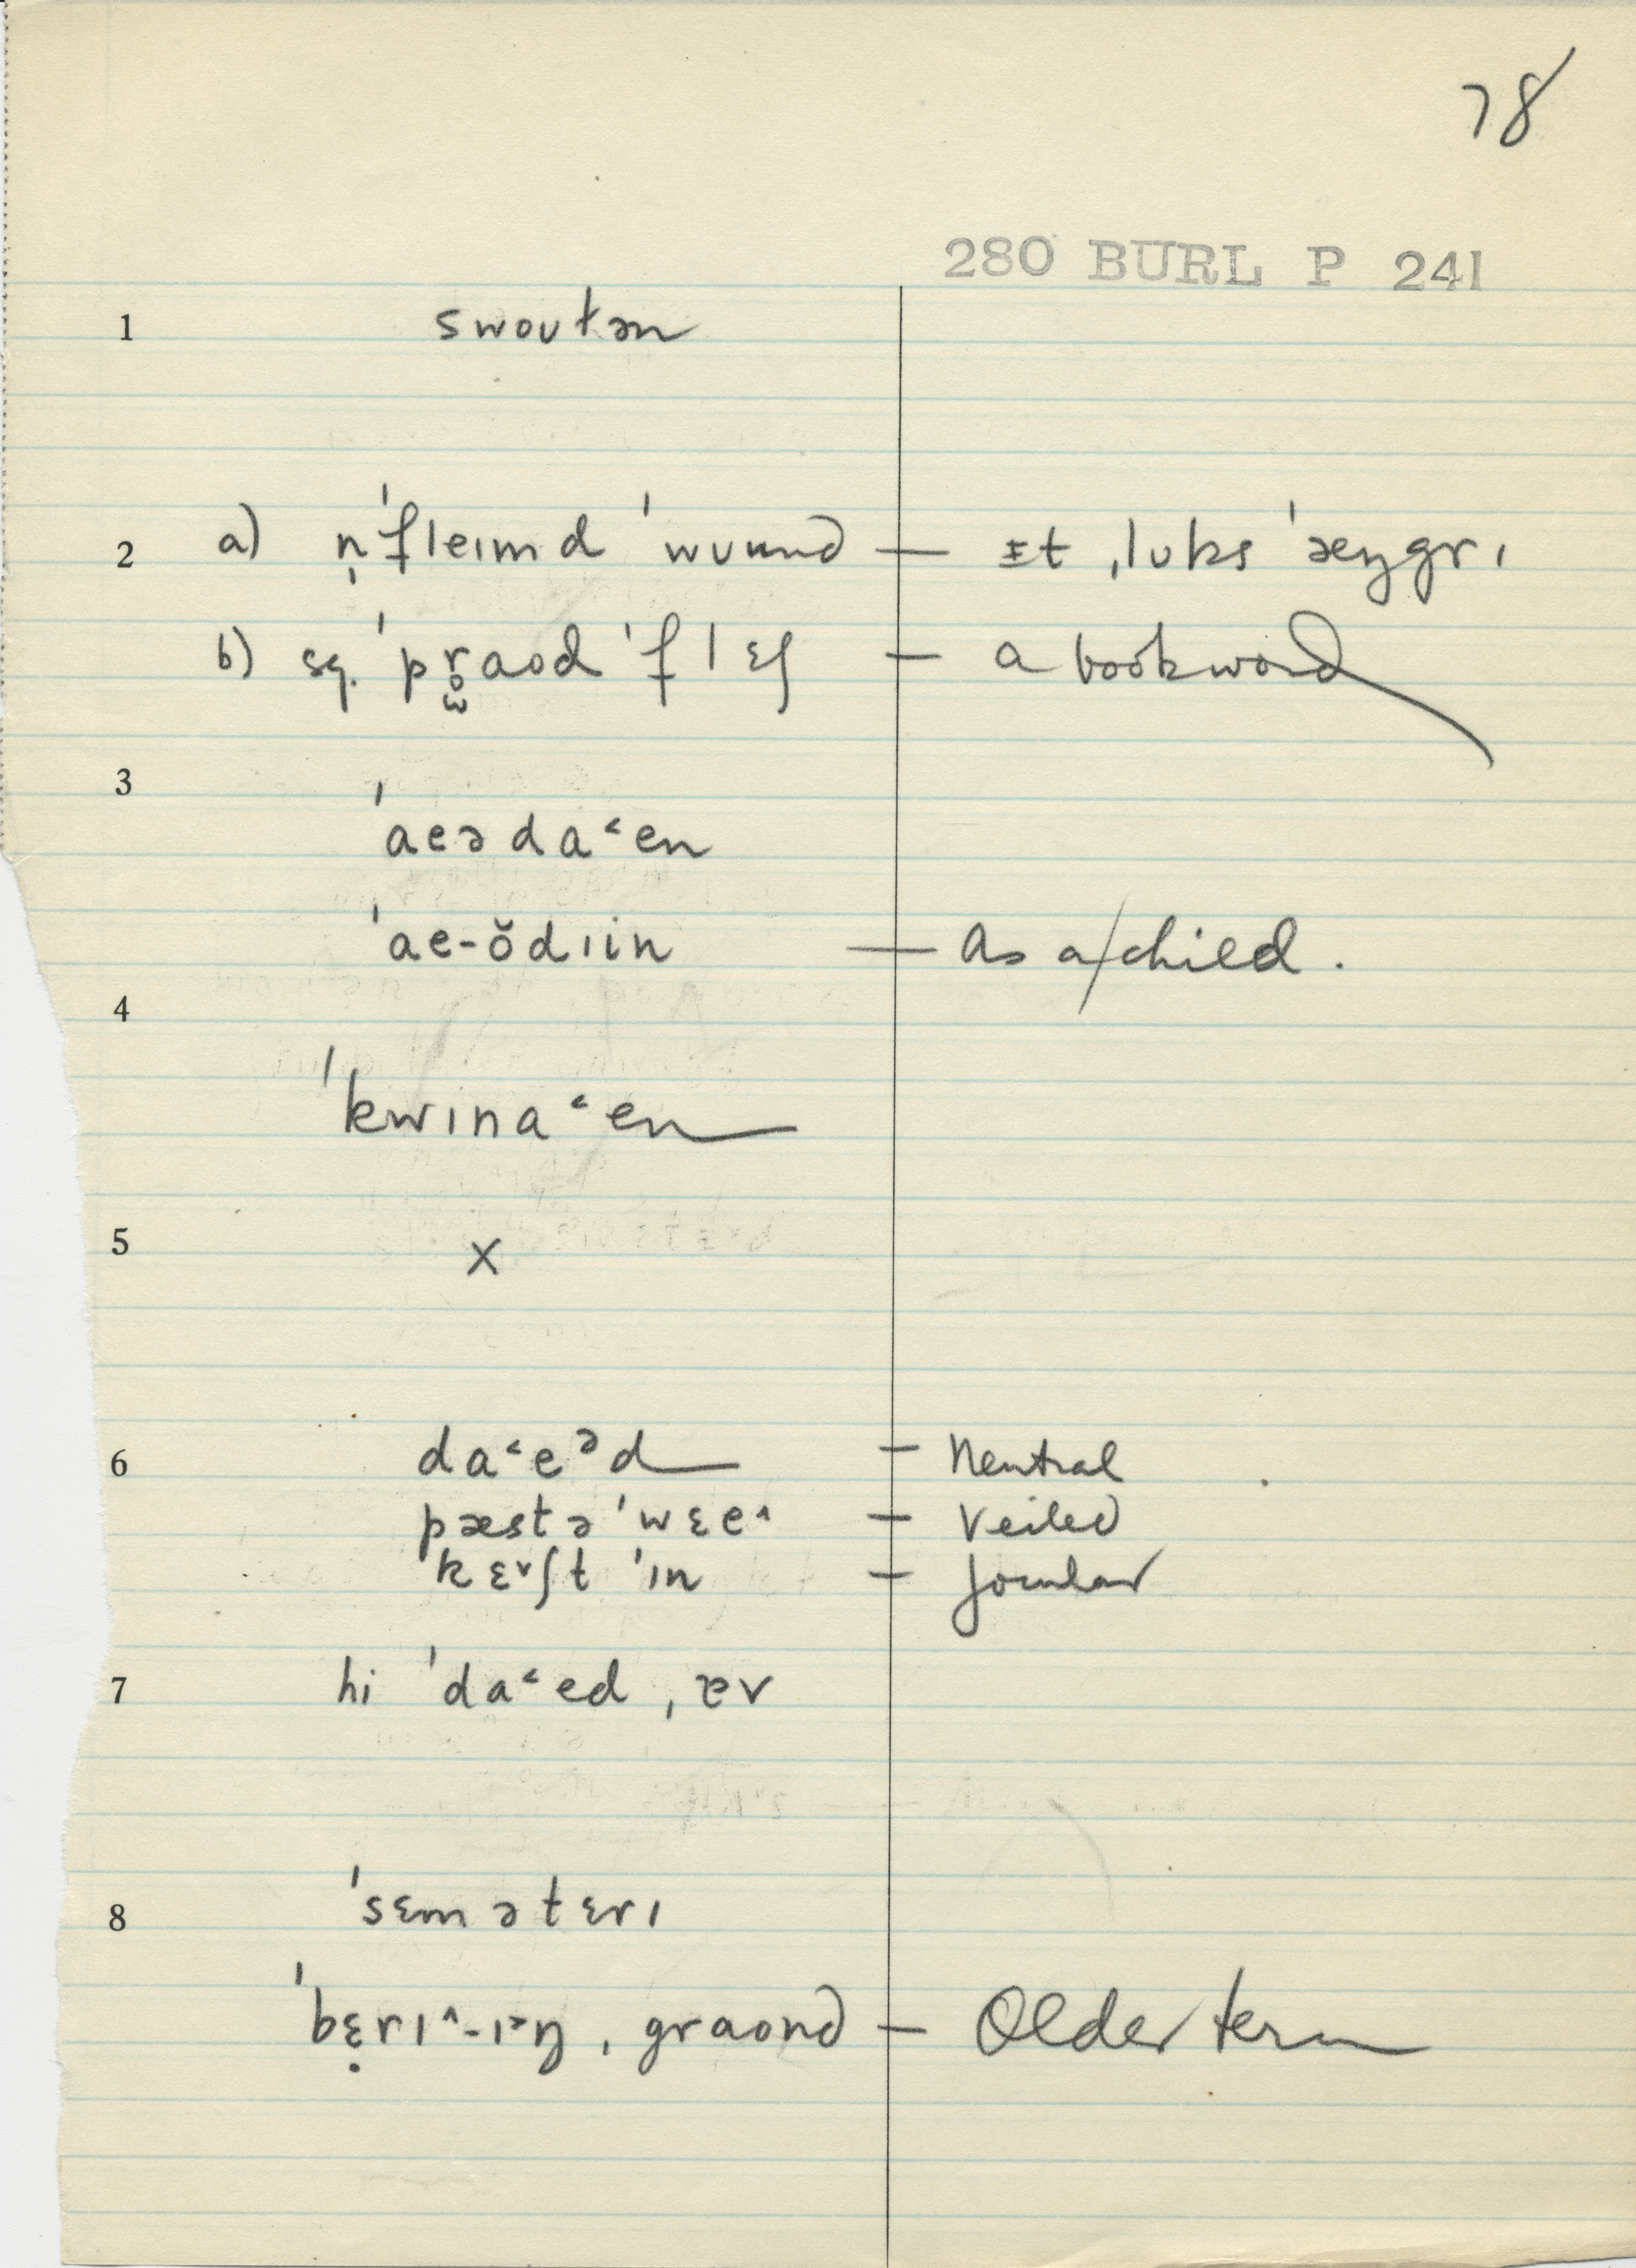 78
280 BURL P 241
1 swoʊtən
2 a) n̩ˈfleɪmd ˈwuund — ɪt ˌlʊks ˈæŋgrɪ
b) sq. ˈpr̥aod ˈflɛʃ — a bookword
3 ˈaeəda˂en
ˈae-ŏdɪin — As a child.
4 ˈkwɪna˂en
5 x
6 da˂eᵊd — Neutral
pæstəˈwɛe˄ — Veiled
ˈkɛ˅ʃt ˈɪn — Jocular
7 hi ˈda˂ed ˌɐv
8 ˈsɛmətɛrɪ
ˈbɛ̣rɪ˄-ɪ˃ŋ ˌgraond — Older term